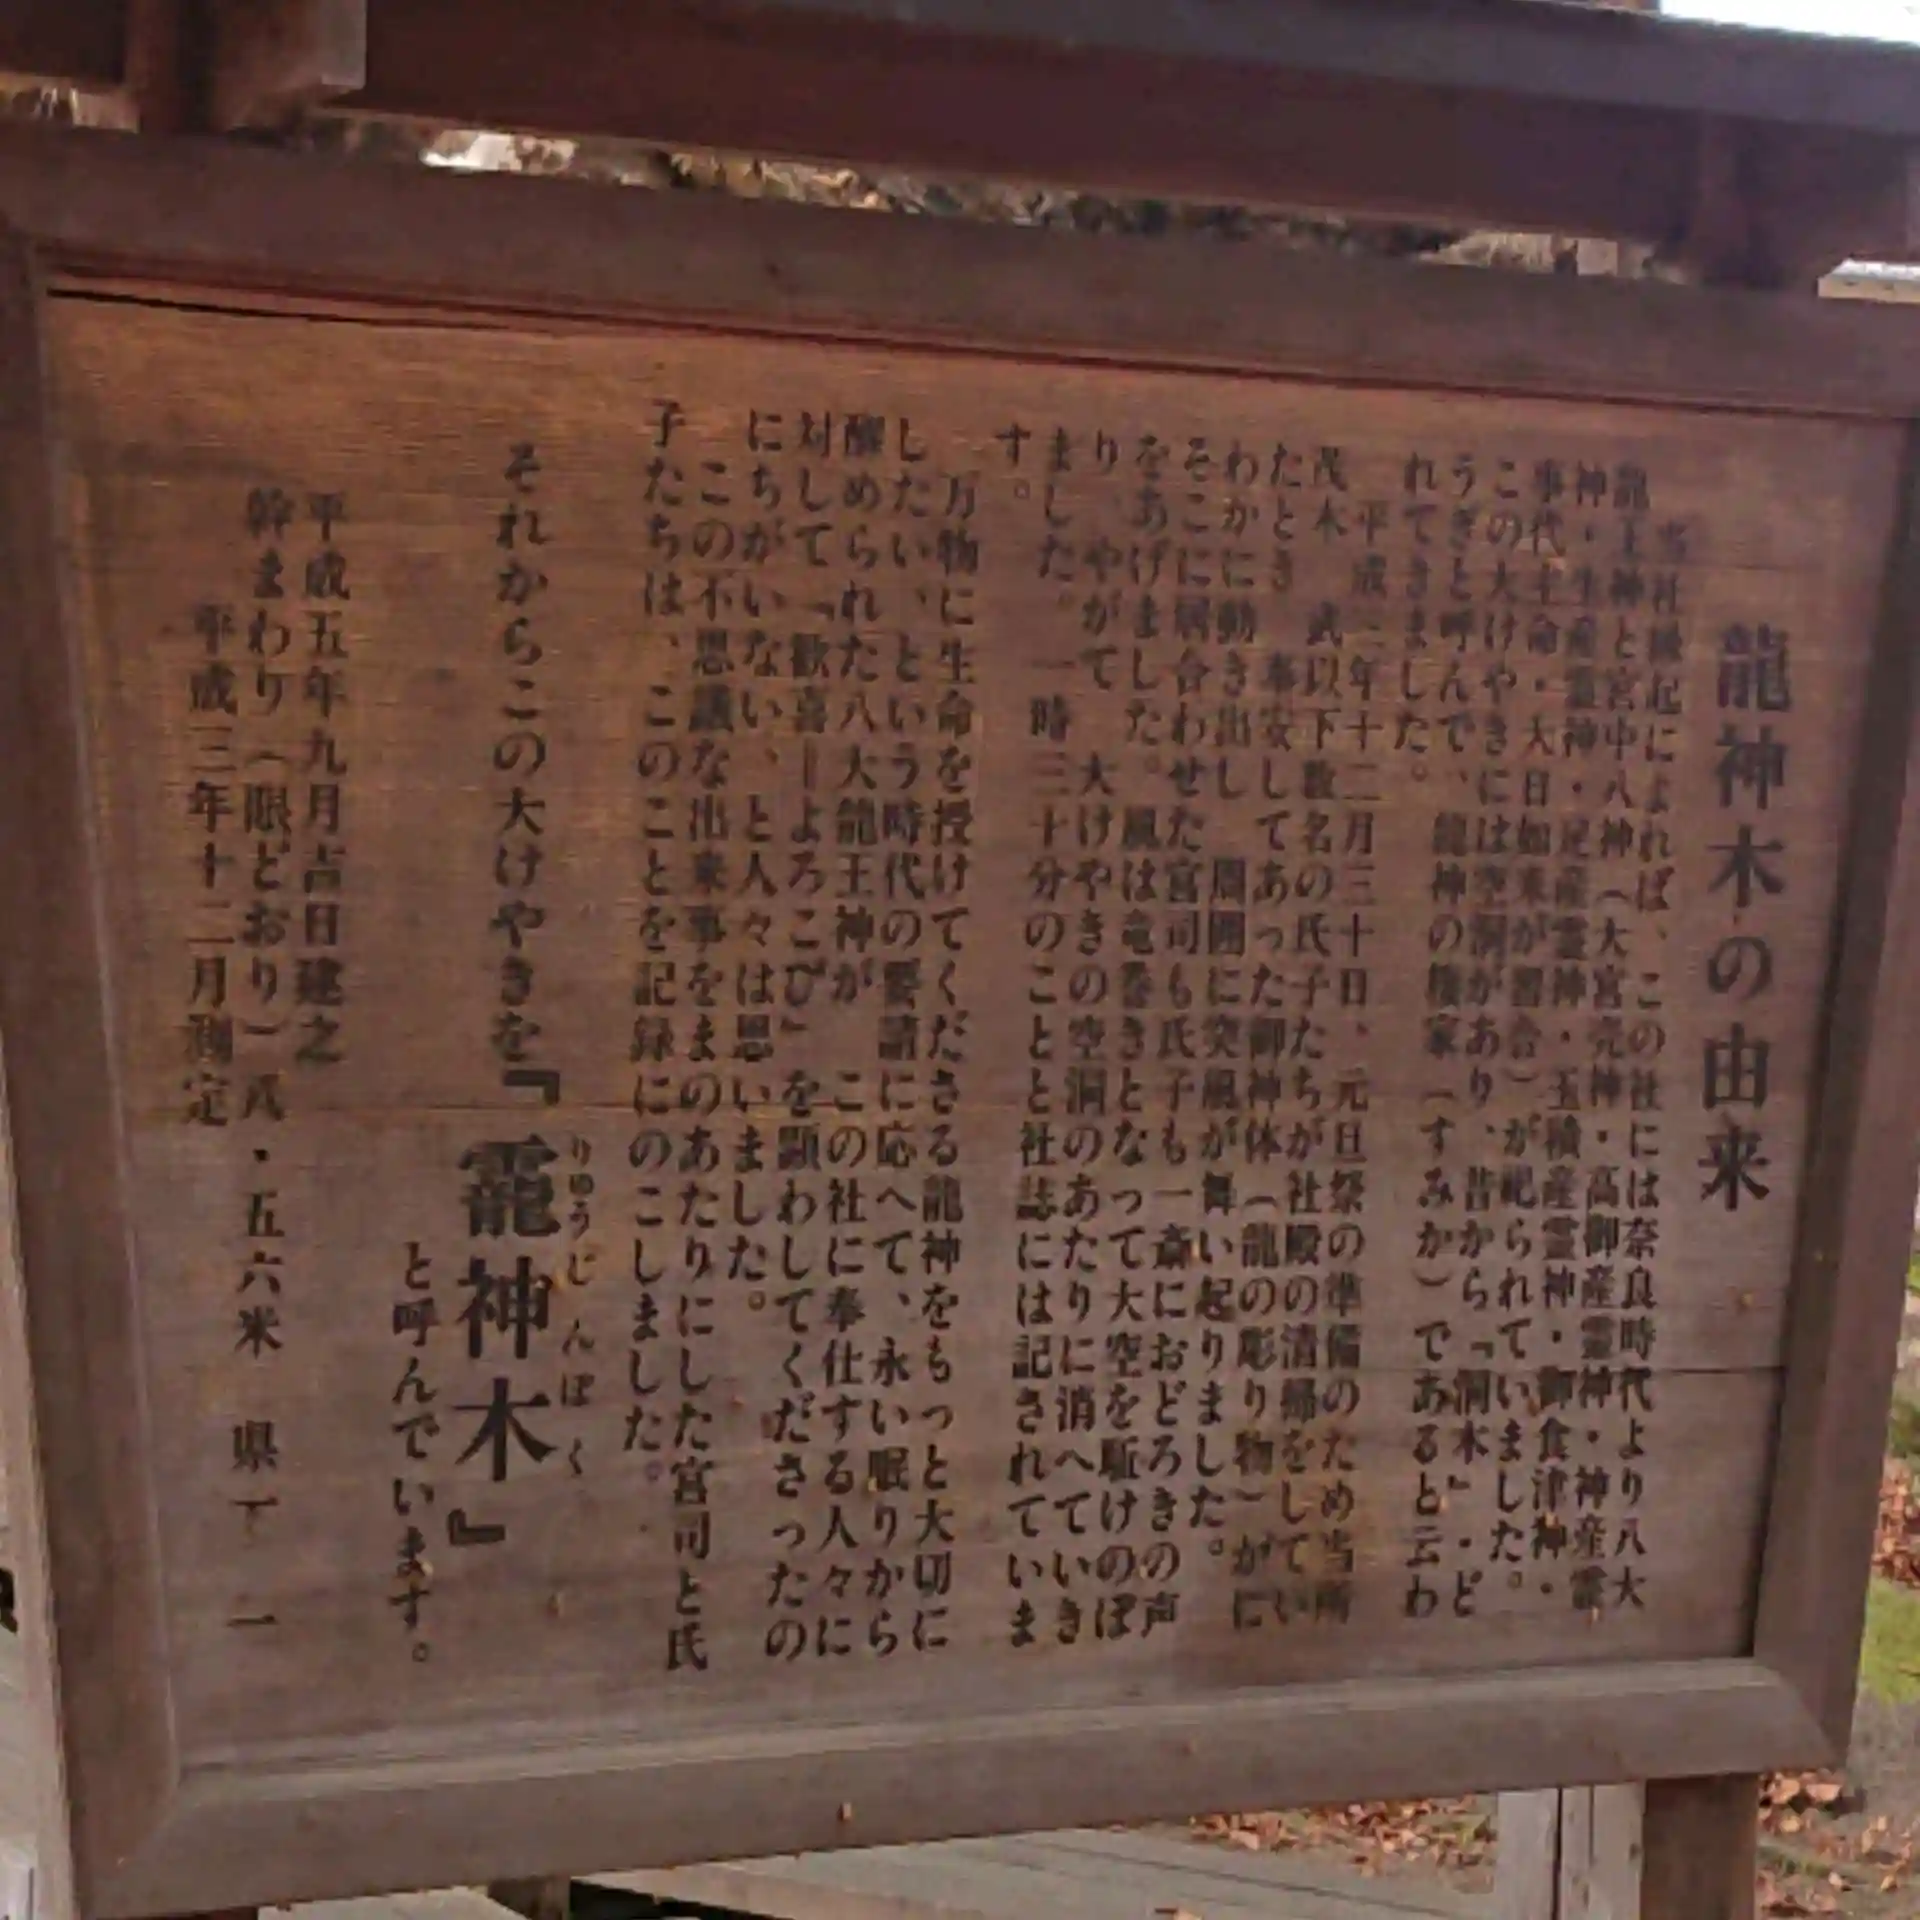 龍神木の由来
当社縁起によれば、この社には奈良時代より八大
龍王神と宮中八神（大宮売神・高御産霊神・神産霊
神・生産霊神・足産霊神・玉積産霊神・御食津神・
事代主命・大日如来が習合）が祀られていました。
この大けやきには空洞があり、昔から「洞木」・ど
うぎと呼んで、龍神の棲家（すみか）であると云わ
れてきました。
平成三年十二月三十日、元旦祭の準備のため当所
茂木 武以下数名の氏子たちが社殿の清掃をしてい
たとき 奉安してあった御神体（龍の彫り物）がに
わかに動き出し 周囲に突風が舞い起りました。
そこに居合わせた宮司も氏子も一斎におどろきの声
をあげました。風は竜巻きとなって大空を駈けのぼ
り、やがて 大けやきの空洞のあたりに消へていき
ました。一時三十分のことと社誌には記されていま
す。
万物に生命を授けてくださる龍神をもっと大切に
したい、という時代の要請に応へて、永い眠りから
醒められた八大龍王神が この社に奉仕する人々に
対して「歓喜ーよろこび」を顕わしてくださったの
にちがいない、と人々は思いました。
この不思議な出来事をまのあたりにした宮司と氏
子たちは、このことを記録にのこしました。
それからこの大けやきを『龗神木』
りゅうじんぼく
と呼んでいます。
平成五年九月吉日建之
幹まわり（限どおり）八・五六米 県下一
平成三年十二月測定